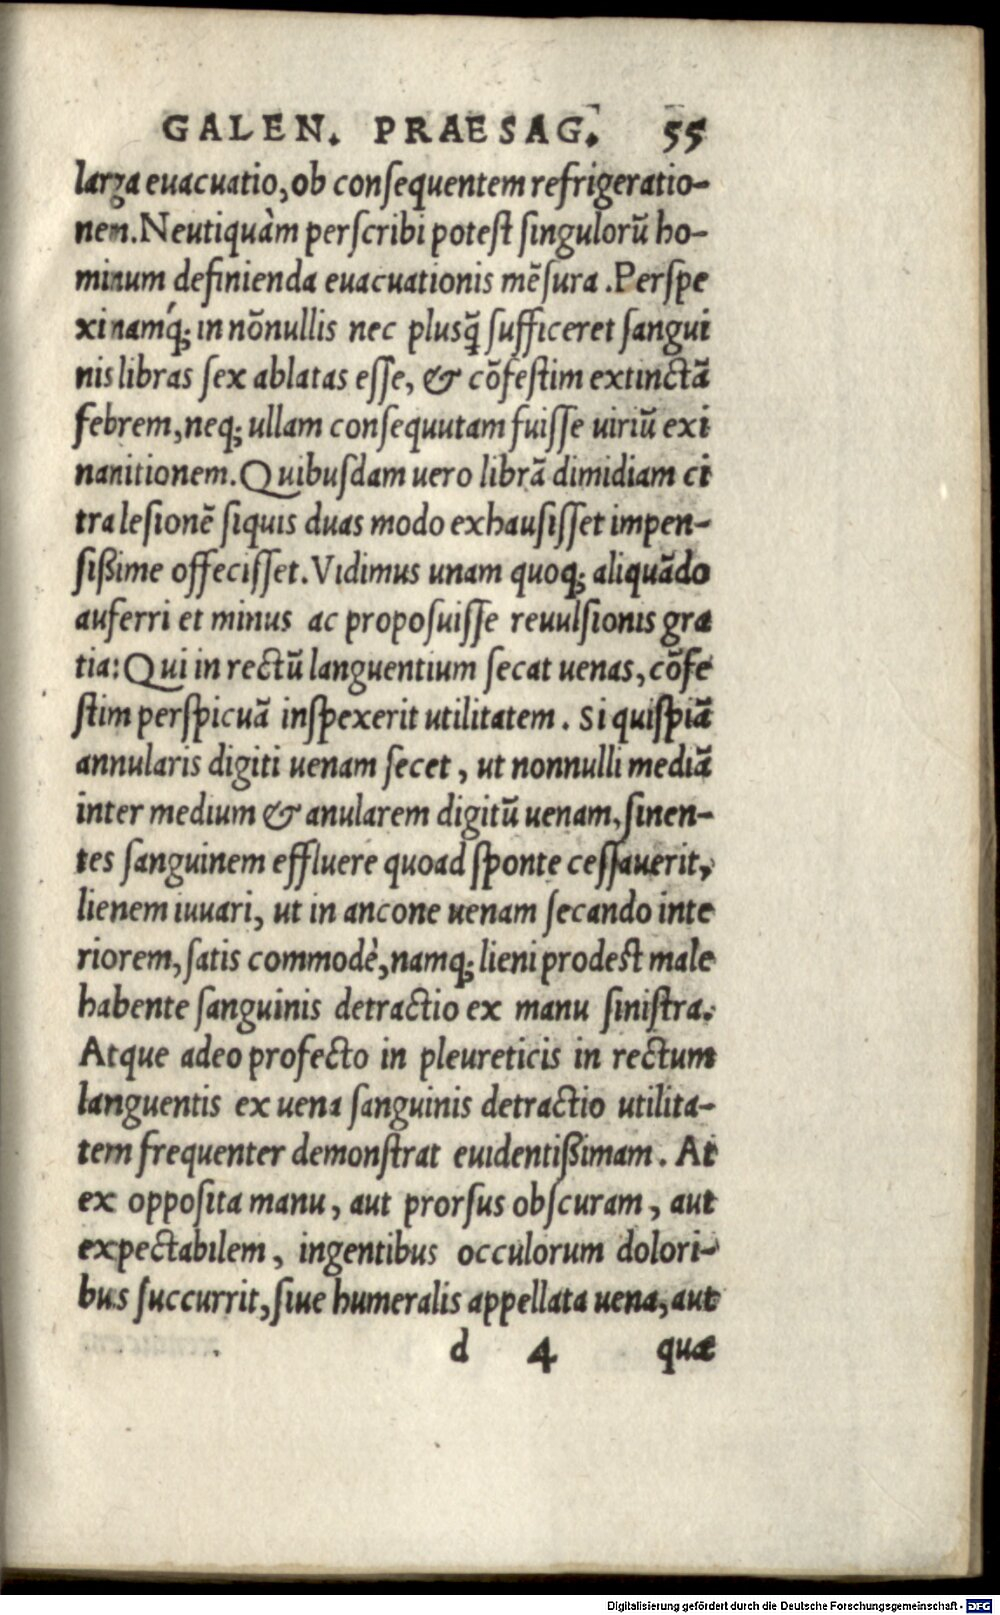 GALEN. PRAESAG. 55
larga euacuatio, ob conſequentem refrigeratio-
nem. Neutiquàm perſcribi poteſt ſingulorũ ho-
minum definienda euacuationis mẽſura. Perſpe
xi namq́; in nõnullis nec pluſq̃ ſufficeret ſangui
nis libras ſex ablatas eſſe, & cõfeſtim extinctã
febrem, neq; ullam conſequutam fuiſſe uiriũ exi
nanitionem. Quibuſdam uero librã dimidiam ci
tra leſionẽ ſiquis duas modo exhauſiſſet impen-
ſißime offeciſſet. Vidimus unam quoq; aliquãdo
auferri et minus ac propoſuiſſe reuulſionis gra
tia: Qui in rectũ languentium ſecat uenas, cõfe
ſtim perſpicuã inſpexerit utilitatem. Si quiſpiã
annularis digiti uenam ſecet, ut nonnulli mediã
inter medium & anularem digitũ uenam, ſinen-
tes ſanguinem effluere quoad ſponte ceſſauerit,
lienem iuuari, ut in ancone uenam ſecando inte
riorem, ſatis commodè, namq; lieni prodeſt male
habente ſanguinis detractio ex manu ſiniſtra.
Atque adeo profecto in pleureticis in rectum
languentis ex uena ſanguinis detractio utilita-
tem frequenter demonſtrat euidentißimam. At
ex oppoſita manu, aut prorſus obſcuram, aut
expectabilem, ingentibus occulorum dolori-
bus ſuccurrit, ſiue humeralis appellata uena, aut
d 4 quæ
Digitalisierung gefördert durch die Deutsche Forschungsgemeinschaft - DFG